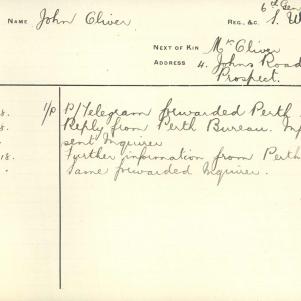 6th Gen
NAME John Oliver REG., &C. S. W
NEXT OF KIN Mr Oliver
ADDRESS 4. Johns Road
Prospect.
8. 1/P P/Telegram forwarded Perth.
8. Reply from Perth Bureau. Inf
sent Inquirer
18. Further information from Perth
Same forwarded Inquirer.